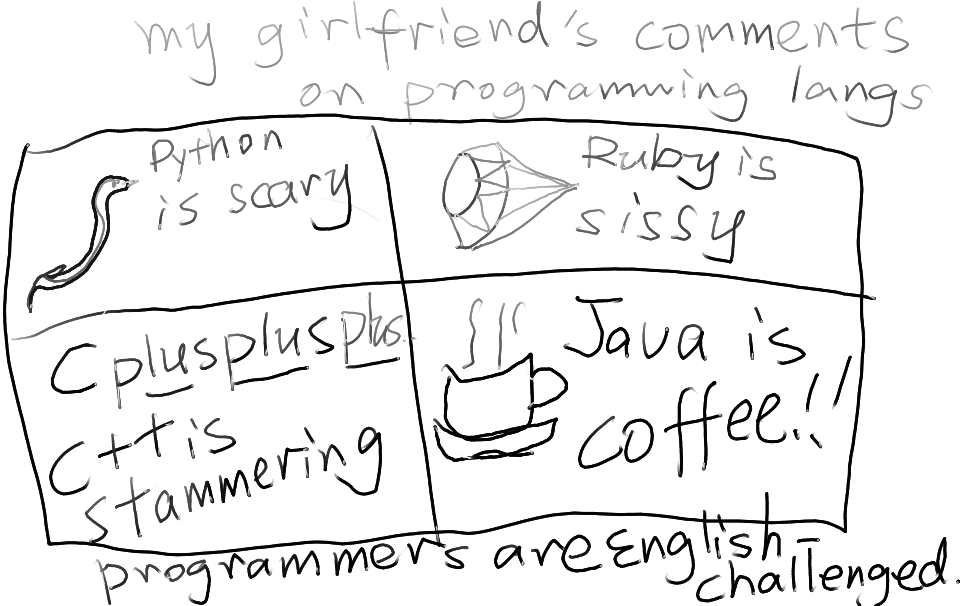 my girlfriend's comments
on programming langs
Python
is scary
Ruby is
sissy
C plusplusplus
C++ is
stammering
Java is
coffee!!
programmers are English-
challenged.